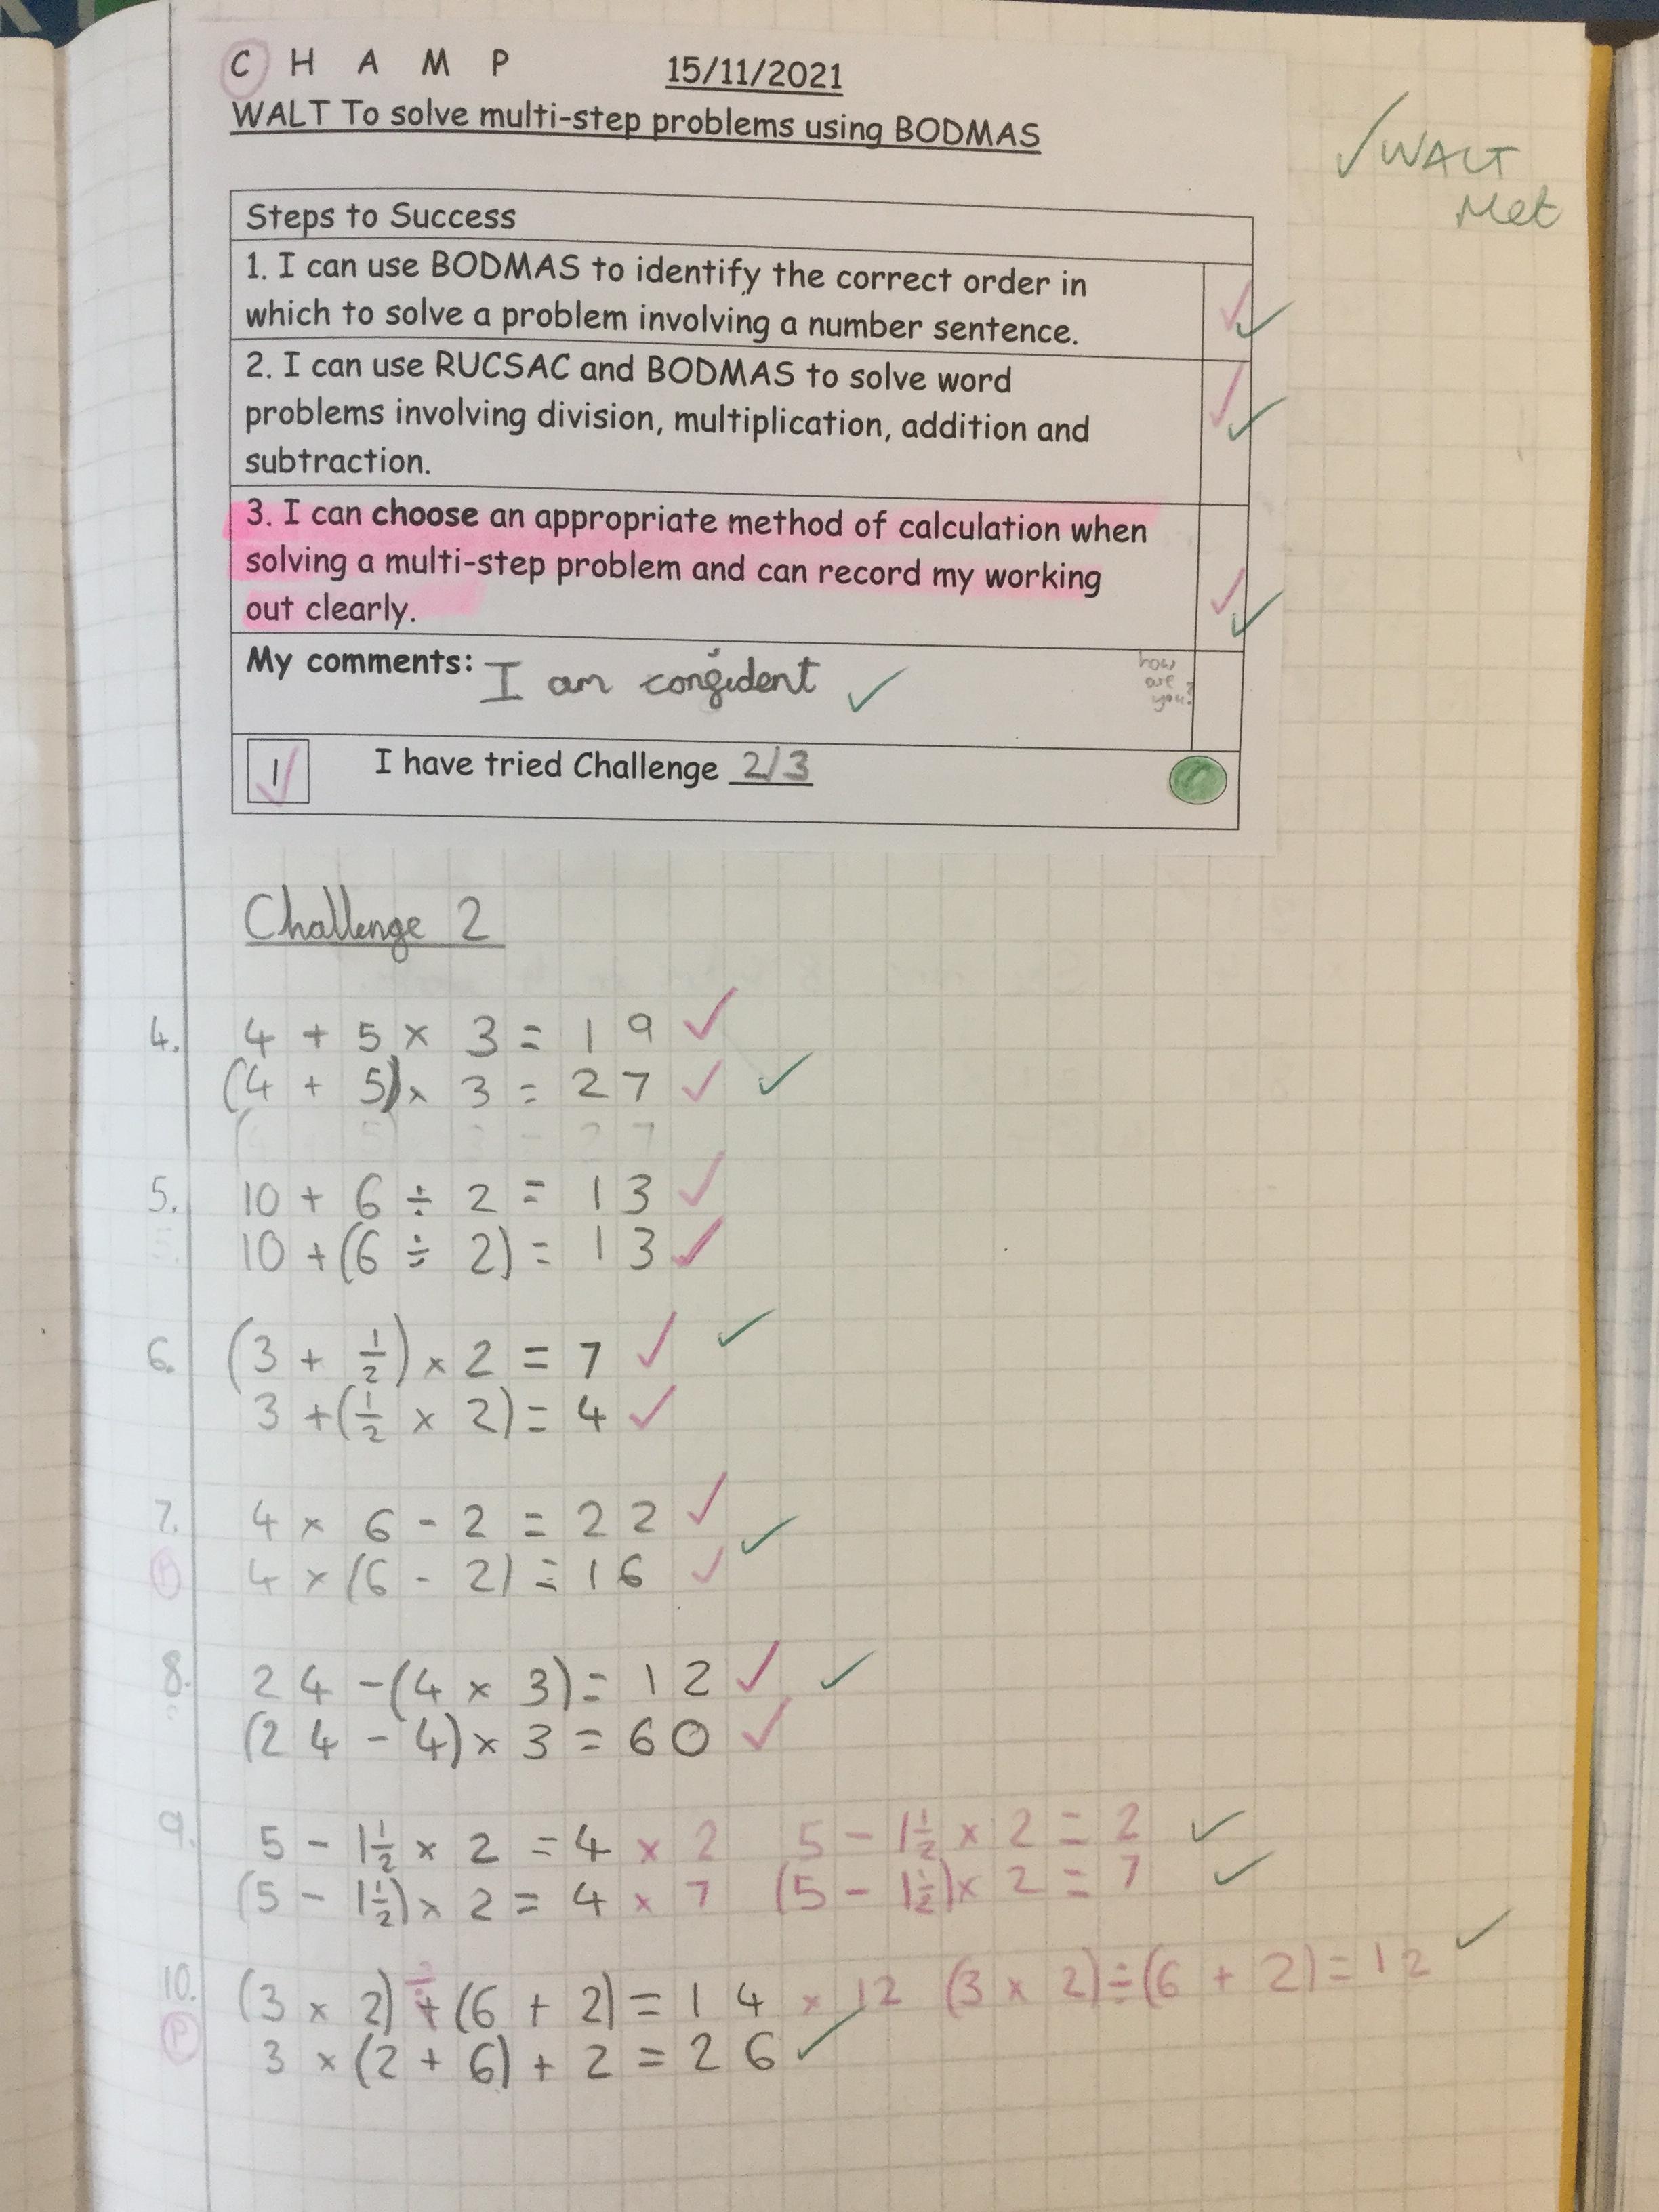 C H A M P 15/11/2021
WALT To solve multi-step problems using BODMAS
✓ WALT
Met
Steps to Success
1. I can use BODMAS to identify the correct order in
which to solve a problem involving a number sentence.
2. I can use RUCSAC and BODMAS to solve word
problems involving division, multiplication, addition and
subtraction.
3. I can choose an appropriate method of calculation when
solving a multi-step problem and can record my working
out clearly.
My comments: I am confident ✓
how
are
you?
1 I have tried Challenge 2/3
Challenge 2
4. 4 + 5 × 3 = 19 ✓
(4 + 5) × 3 = 27 ✓ ✓
5. 10 + 6 ÷ 2 = 13 ✓
10 + (6 ÷ 2) = 13 ✓
6. (3 + 1/2) × 2 = 7 ✓ ✓
3 + (1/2 × 2) = 4 ✓
7. 4 × 6 - 2 = 22 ✓
4 × (6 - 2) = 16 ✓ ✓
8. 24 - (4 × 3) = 12 ✓ ✓
(24 - 4) × 3 = 60 ✓
9. 5 - 1 1/2 × 2 = 4 × 2 5 - 1 1/2 × 2 = 2 ✓
(5 - 1 1/2) × 2 = 4 × 7 (5 - 1 1/2) × 2 = 7 ✓
10. (3 × 2) + (6 + 2) = 14 × 12 (3 × 2) ÷ (6 + 2) = 12 ✓
P 3 × (2 + 6) + 2 = 26 ✓